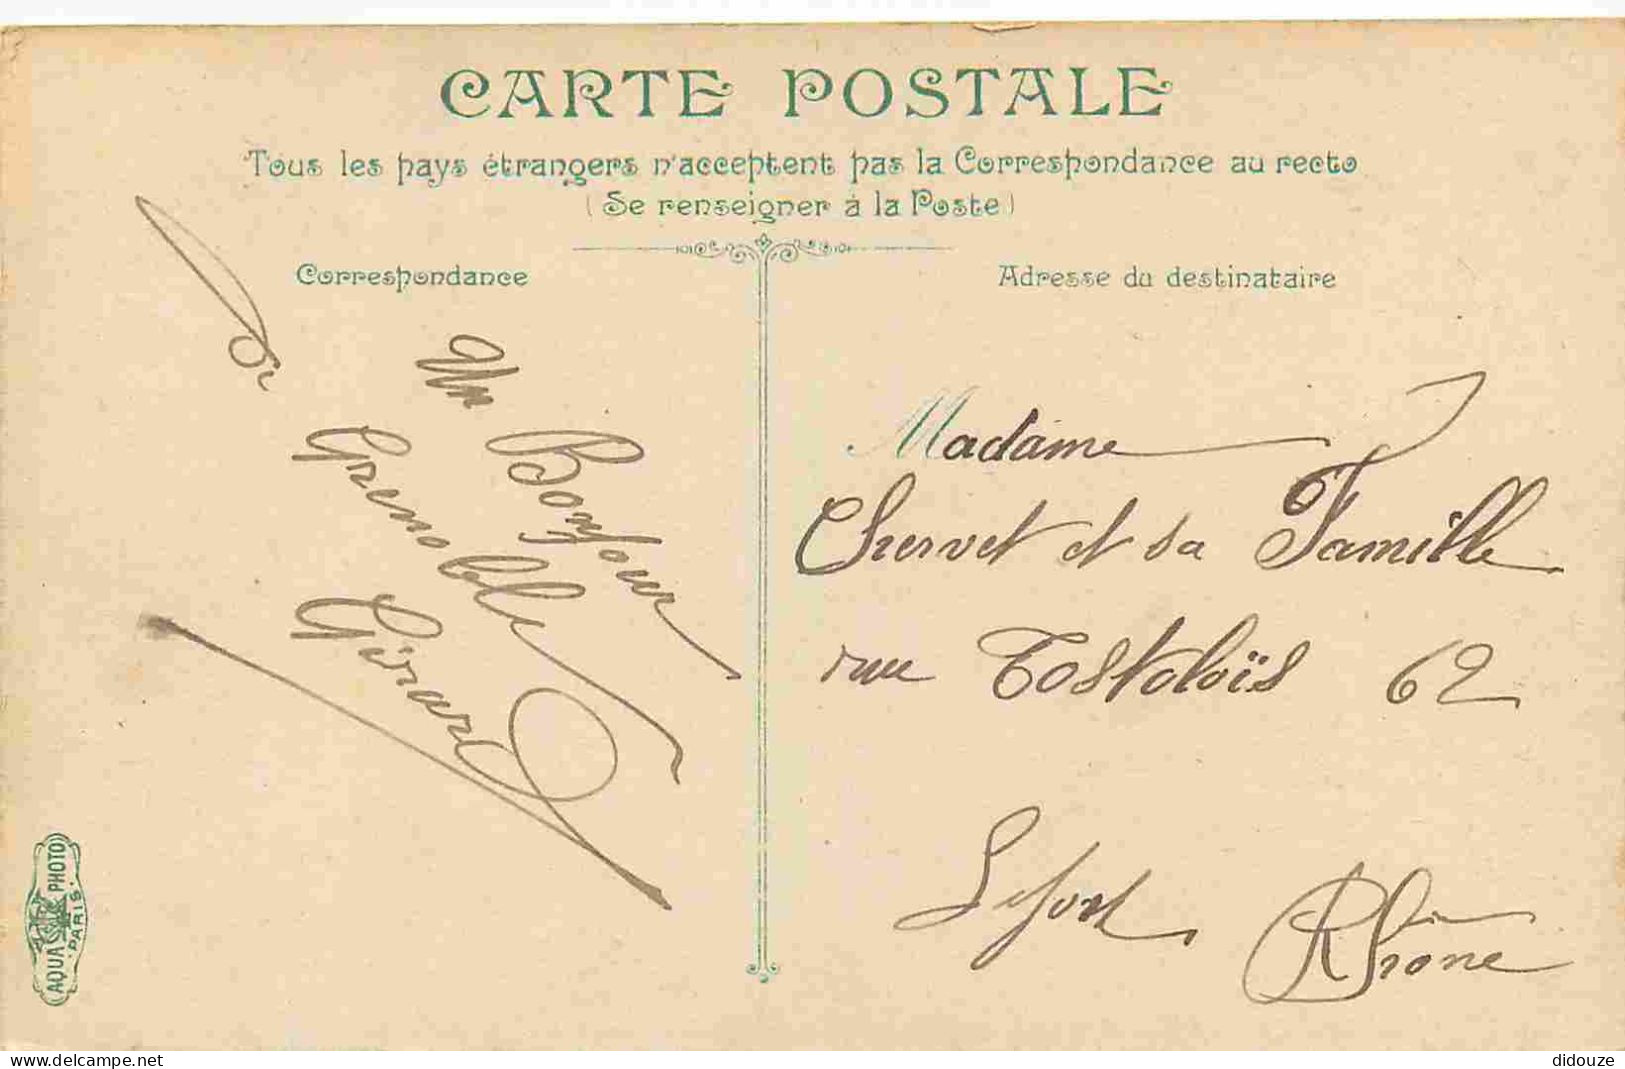 CARTE POSTALE
Tous les pays étrangers n'acceptent pas la Correspondance au recto
(Se renseigner à la Poste)
Correspondance
Adresse du destinataire
Un Bonjour
de Grenoble
Girard
Madame
Chervet et sa Famille
rue Tostoloïs 62
Lyon
Rhône
AQUA PHOTO
PARIS
www.delcampe.net
didouze